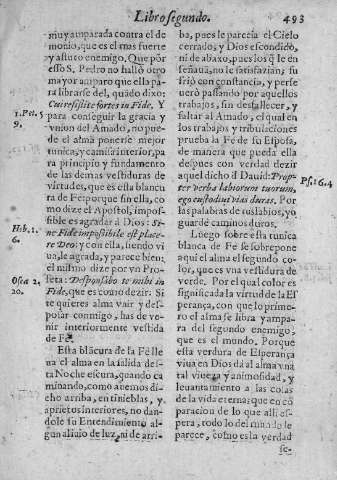 Libro segundo.
493
muy amparada contra el de
monio, que es el mas fuerte
y astuto enemigo. Que por
esso S. Pedro no halló otro
mayor amparo que ella pa-
ra librarse del, quãdo dixo:
Cui resistite fortes in Fide. Y
1. Pet. 5
9.
para conseguir la gracia y
vnion del Amado, no pue-
de el alma ponerse mejor
tunica, y camisa interior, pa
ra principio y fundamento
de las demas vestiduras de
virtudes, que es esta blancu
ra de Fè: porque sin ella, co
mo dize el Apostol, impos-
sible es agradar à Dios: Si-
ne Fide impossibile est place-
Heb. 1. 1.
6.
re Deo: y con ella, siendo vi
ua, le agrada, y parece bien;
el mismo dize por vn Pro-
feta: Desponsabo te mihi in
Fide, que es como dezir: Si
Osea 2.
20.
te quieres alma vnir y des-
posar conmigo, has de ve-
nir interiormente vestida
de Fè.
Esta blãcura de la Fè lle
ua el alma en la salida des-
ta Noche escura, quando ca
minando, como auemos di-
cho arriba, en tinieblas, y
aprietos interiores, no dan-
dole su Entendimiento al-
gun aliuio de luz, ni de arri-
ba, pues le parecia el Cielo
cerrado, y Dios escondido,
ni de abaxo, pues los q̃ le en
señauã, no le satisfaziãn; su
friò con constancia, y perse
uerò passando por aquellos
trabajos, sin desfallecer, y
faltar al Amado, el qual en
los trabajos y tribulaciones
prueba la Fè de su Esposa,
de manera que pueda ella
despues con verdad dezir
aquel dicho d̃ Dauid: Prop-
ter verba labiorum tuorum,
Ps. 16. 4
ego custodiui vias duras. Por
las palabras de tus labios, yo
guardè caminos duros.
Luego sobre esta tunica
blanca de Fè se sobrepone
aqui el alma el segundo co-
lor, que es vna vestidura de
verde. Por el qual color es
significada la virtud de la Es
perança, con que lo prime-
ro el alma se libra y ampa-
ra del segundo enemigo,
que es el mundo. Porque
esta verdura de Esperança
viua en Dios dà al alma vna
tal viueza y animosidad, y
leuantamiento a las cosas
de la vida eterna, que en cõ
paracion de lo que alli es-
pera, todo lo del mundo le
parece, como es la verdad
se-